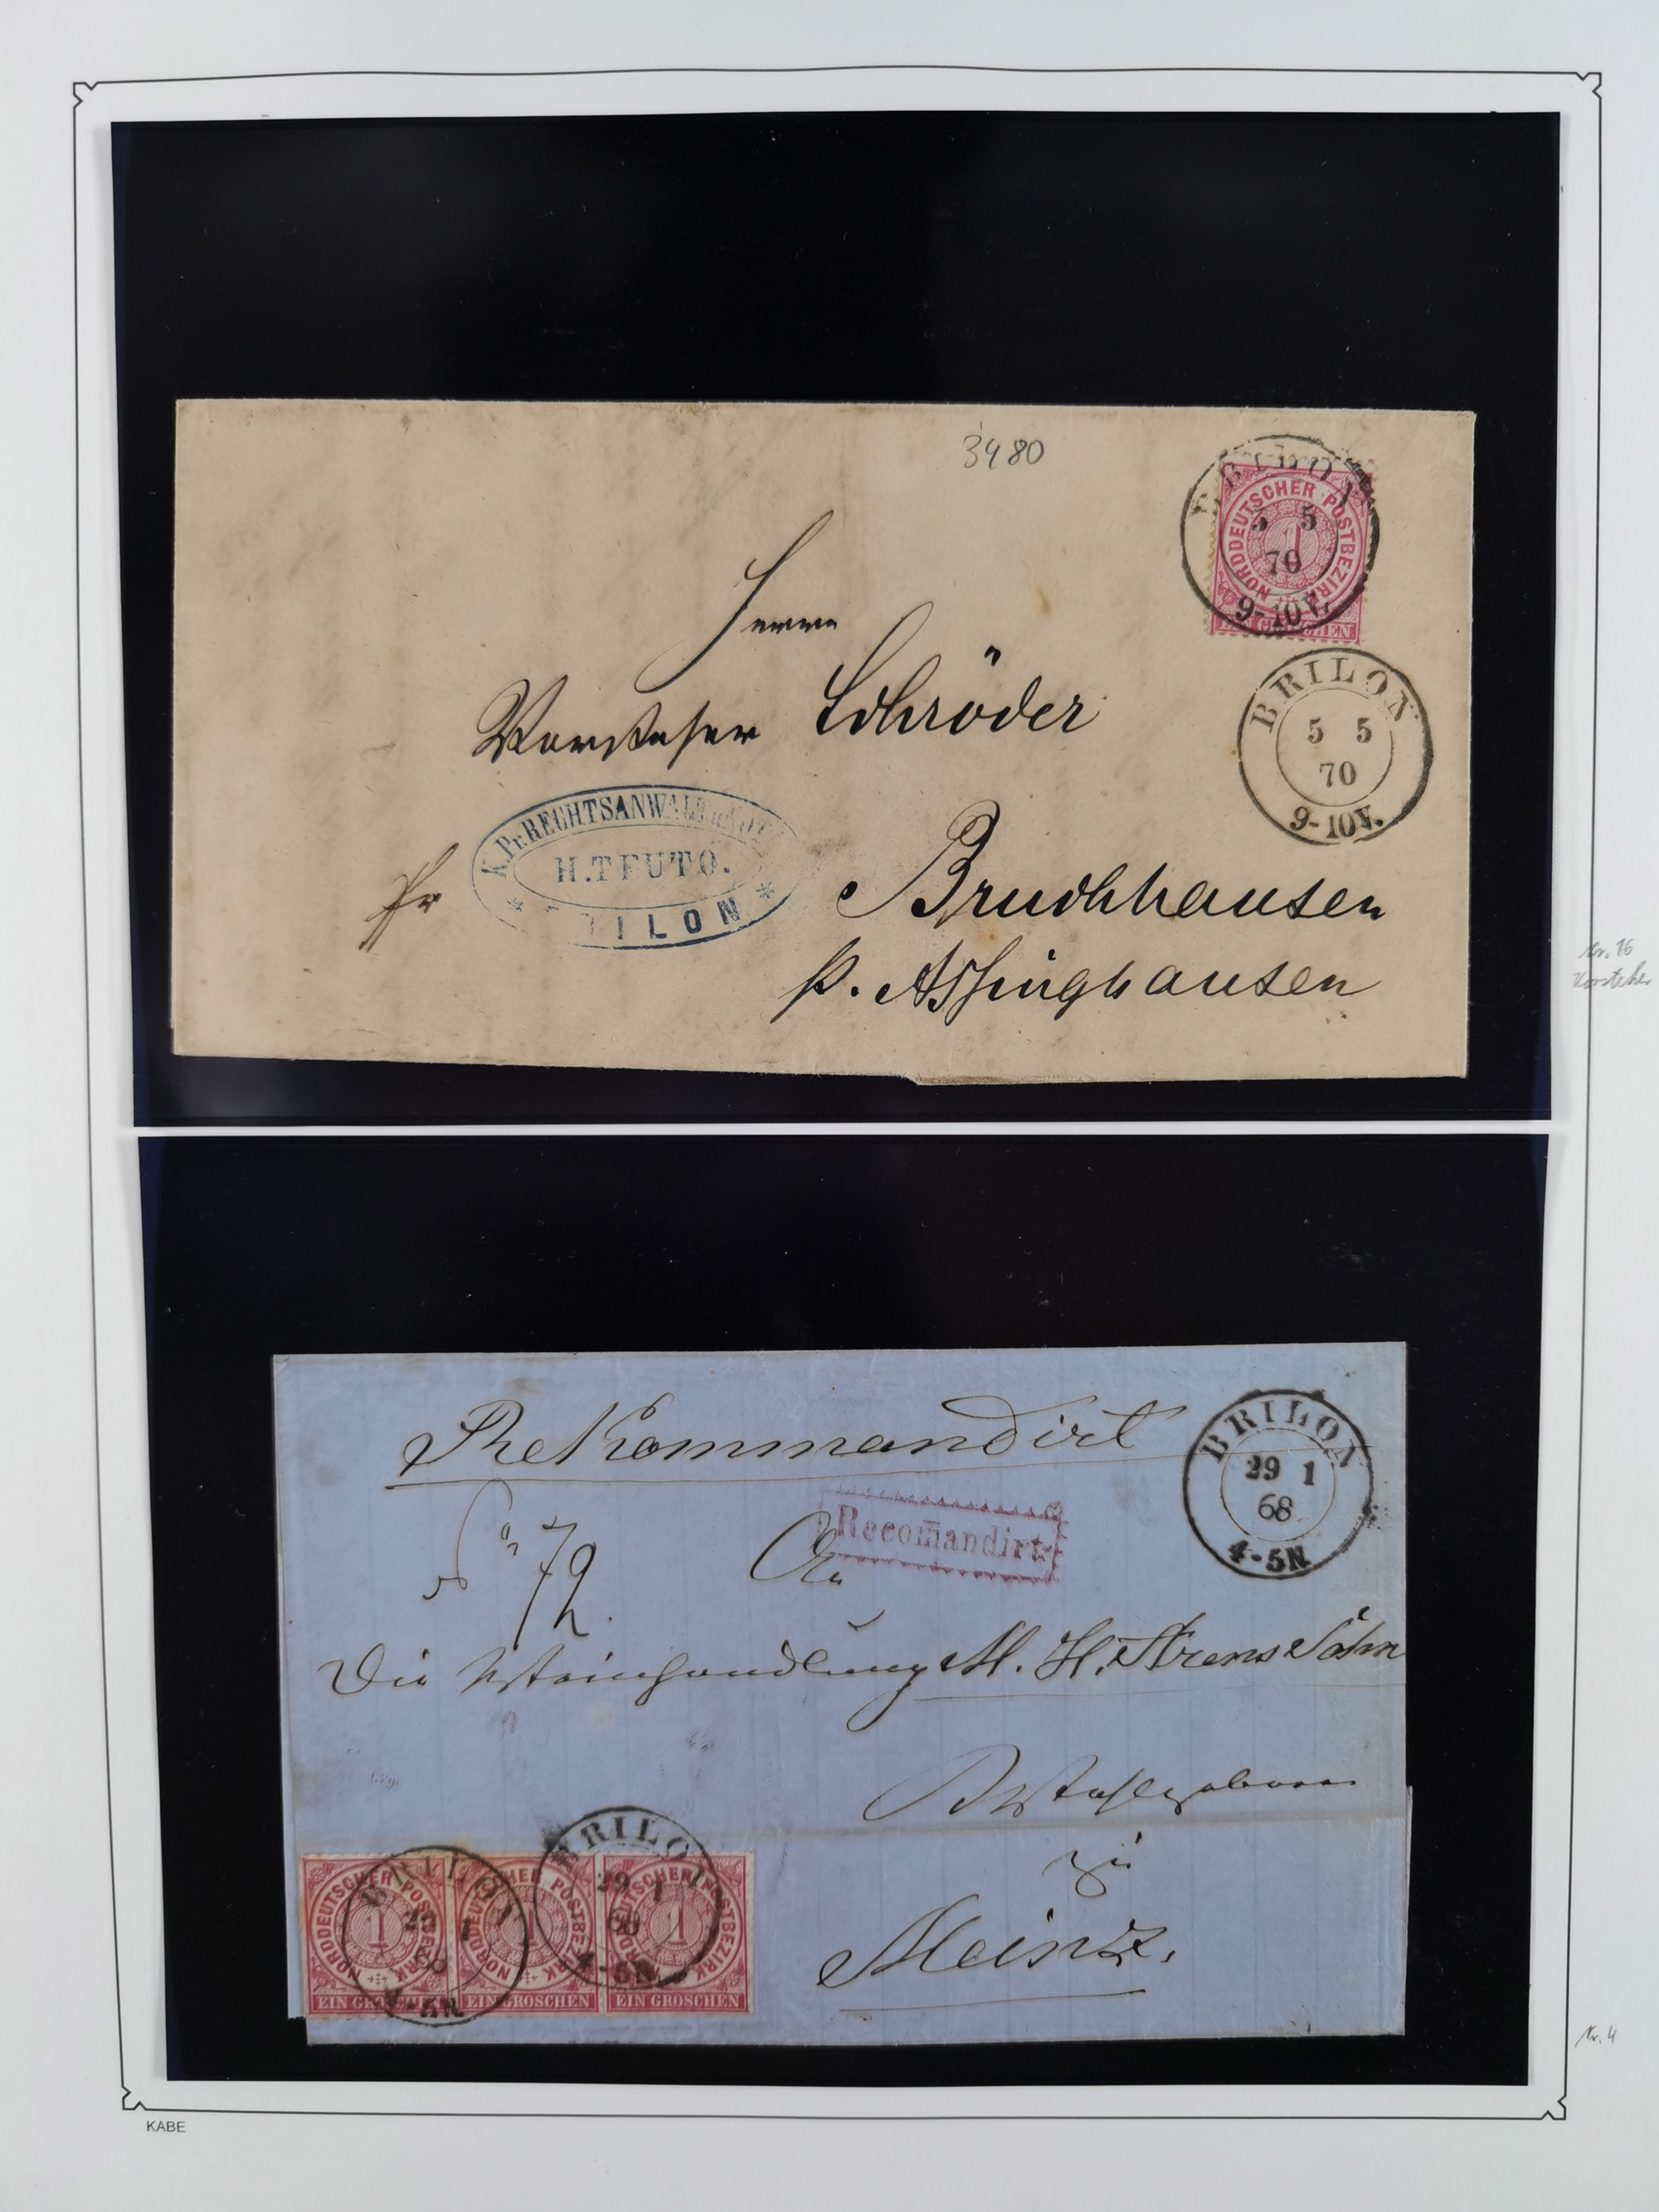 3480
BRILON
5 5
70
9-10V.
NORDDEUTSCHER POSTBEZIRK
1
EIN GROSCHEN
BRILON
5 5
70
9-10V.
Herrn
Vorsteher Schröder
K. Pr. RECHTSANWALD
H. TEUTO.
BRILON
Bruchhausen
p. Assinghausen
Nr. 16
Vorsteher
Rekommandirt
BRILON
29 1
68
4-5N
Recom̄andirt
An
Die Weinhandlung M. H. Arens Sohn
zu
Mainz.
BRILON
29 1
68
4-5N
BRILON
29 1
68
4-5N
NORDDEUTSCHER POSTBEZIRK
1
EIN GROSCHEN
NORDDEUTSCHER POSTBEZIRK
1
EIN GROSCHEN
NORDDEUTSCHER POSTBEZIRK
1
EIN GROSCHEN
Nr. 4
KABE